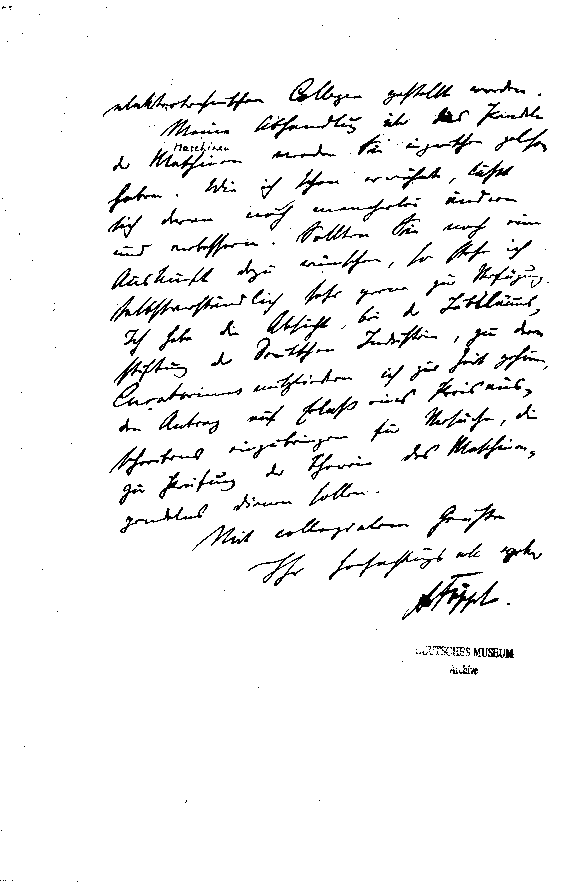 elektrotechnischen Collegen gestellt werden.
Meine Abhandlung über das Pendeln
Maschinen
der Maschinen werden Sie inzwischen gelesen
haben. Wie ich schon erwähnte, lässt
sich daran noch mancherlei ändern
und verbessern. Sollten Sie noch eine
Auskunft dazu wünschen, so stehe ich
selbstverständlich sehr gerne zu Verfügung.
Ich habe die Absicht, bei der Jubiläums-
stiftung der Deutschen Industrie, zu deren
Curatorium ich zur Zeit gehöre,
den Antrag auf Erlaß eines Preisaus-
schreibens einzubringen für Versuche, die
zur Prüfung der Theorie des Maschinen-
pendelns dienen sollen.
Mit collegialem Gruße
Ihr hochachtungsvoll ergebener
A. Föppl.
DEUTSCHES MUSEUM
Archive